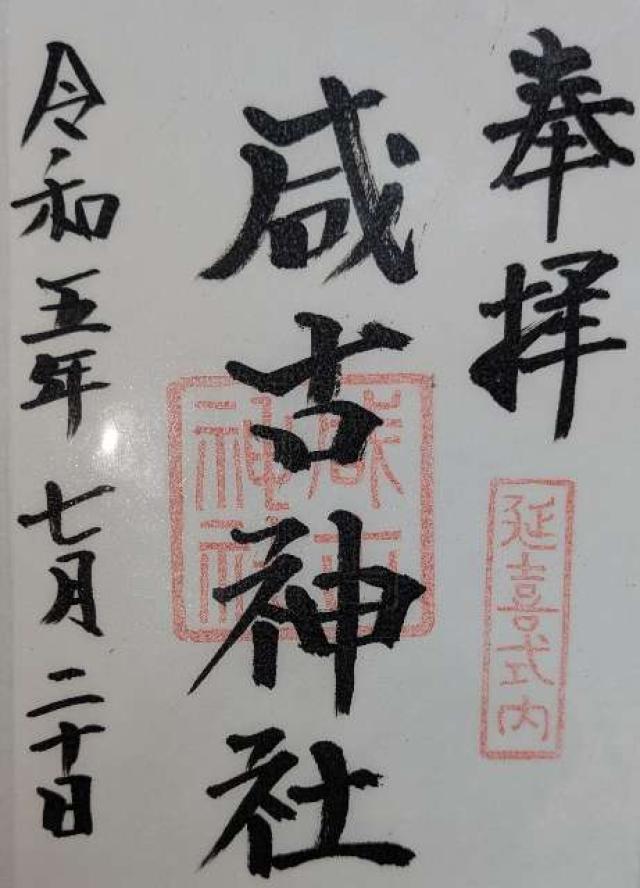 奉拝
延喜式内
咸古神社
咸古神社
令和五年七月二十日